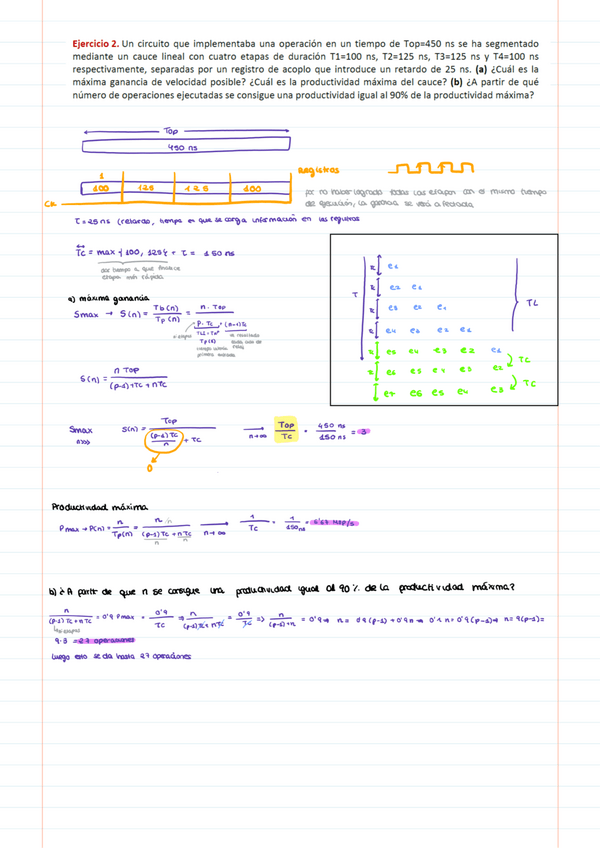 Ejercicio 2. Un circuito que implementaba una operación en un tiempo de Top=450 ns se ha segmentado
mediante un cauce lineal con cuatro etapas de duración T1=100 ns, T2=125 ns, T3=125 ns y T4=100 ns
respectivamente, separadas por un registro de acoplo que introduce un retardo de 25 ns. (a) ¿Cuál es la
máxima ganancia de velocidad posible? ¿Cuál es la productividad máxima del cauce? (b) ¿A partir de qué
número de operaciones ejecutadas se consigue una productividad igual al 90% de la productividad máxima?
Top
450 ns
1
Registros
100 125 125 100
CLK
por no haber logrado todas las etapas con el mismo tiempo
de ejecución, la ganancia se verá afectada
τ = 25 ns (retardo, tiempo en que se carga información en los registros
Tc = max { 100, 125 } + τ = 150 ns
etapa más rápida
a) máxima ganancia
Smax → S(n) = Tb(n) / Tp(n) = n · Top / P · Tc + (n-1)Tc
S(n) = n Top / (p-1)·Tc + nTc
Smax n>>> S(n) = Top / (p-1)Tc / n + Tc → n→∞ Top / Tc = 450 ns / 150 ns = 3
0
T
τ e1
τ e2 e1
τ e3 e2 e1
τ e4 e3 e2 e1
τ e5 e4 e3 e2 e1
τ e6 e5 e4 e3 e2
e7 e6 e5 e4 e3
TL
TC
TC
Productividad máxima
Pmax → P(n) = n / Tp(n) = n/n / (p-1)Tc / n + nTc / n → n→∞ 1 / Tc = 1 / 150 ns = 6'67 MOP/s
b) ¿A partir de que n se consigue una productividad igual al 90% de la productividad máxima?
n / (p-1)Tc + nTc = 0'9 Pmax = 0'9 / Tc ⇒ n / (p-1)Tc + nTc = 0'9 / Tc ⇒ n / (p-1)+n = 0'9 ⇒ n = 0'9(p-1) + 0'9n ⇒ 0'1n = 0'9(p-1) ⇒ n = 9(p-1) =
9·3 = 27 operaciones
Luego esto se da hasta 27 operaciones